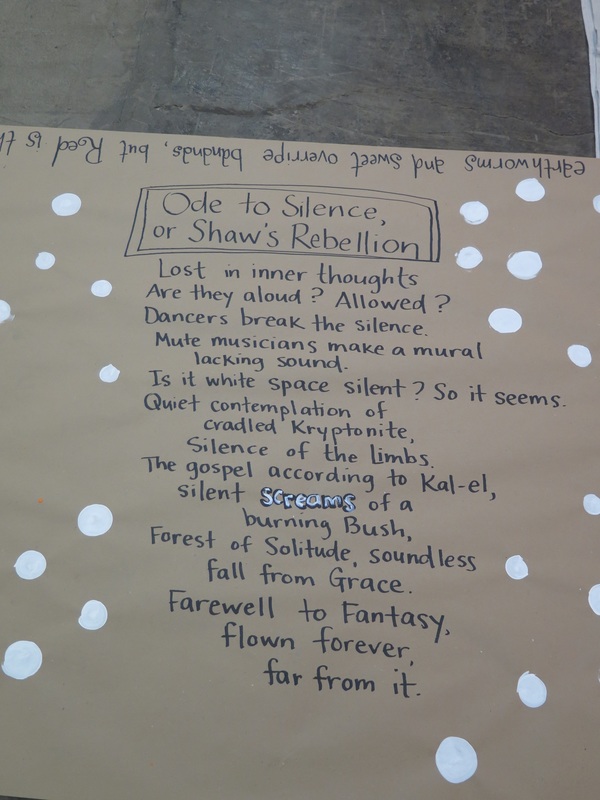 earthworms and sweet overripe bananas, but Red is th
Ode to Silence,
or Shaw's Rebellion
Lost in inner thoughts
Are they aloud? Allowed?
Dancers break the silence.
Mute musicians make a mural
lacking sound.
Is it white space silent? So it seems.
Quiet contemplation of
cradled Kryptonite,
Silence of the Limbs.
The gospel according to Kal-el,
silent screams of a
burning Bush,
Forest of Solitude, soundless
fall from Grace.
Farewell to Fantasy,
flown forever,
far from it.